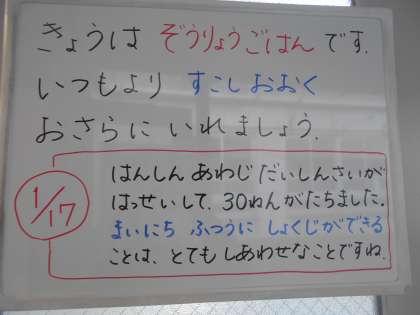 きょうは ぞうりょうごはん です.
いつもより すこし おおく
おさらに いれましょう.
1/17
はんしん あわじ だいしんさいが
はっせいして、30ねんがたちました.
まいにち ふつうに しょくじができる
ことは、とても しあわせなことですね.